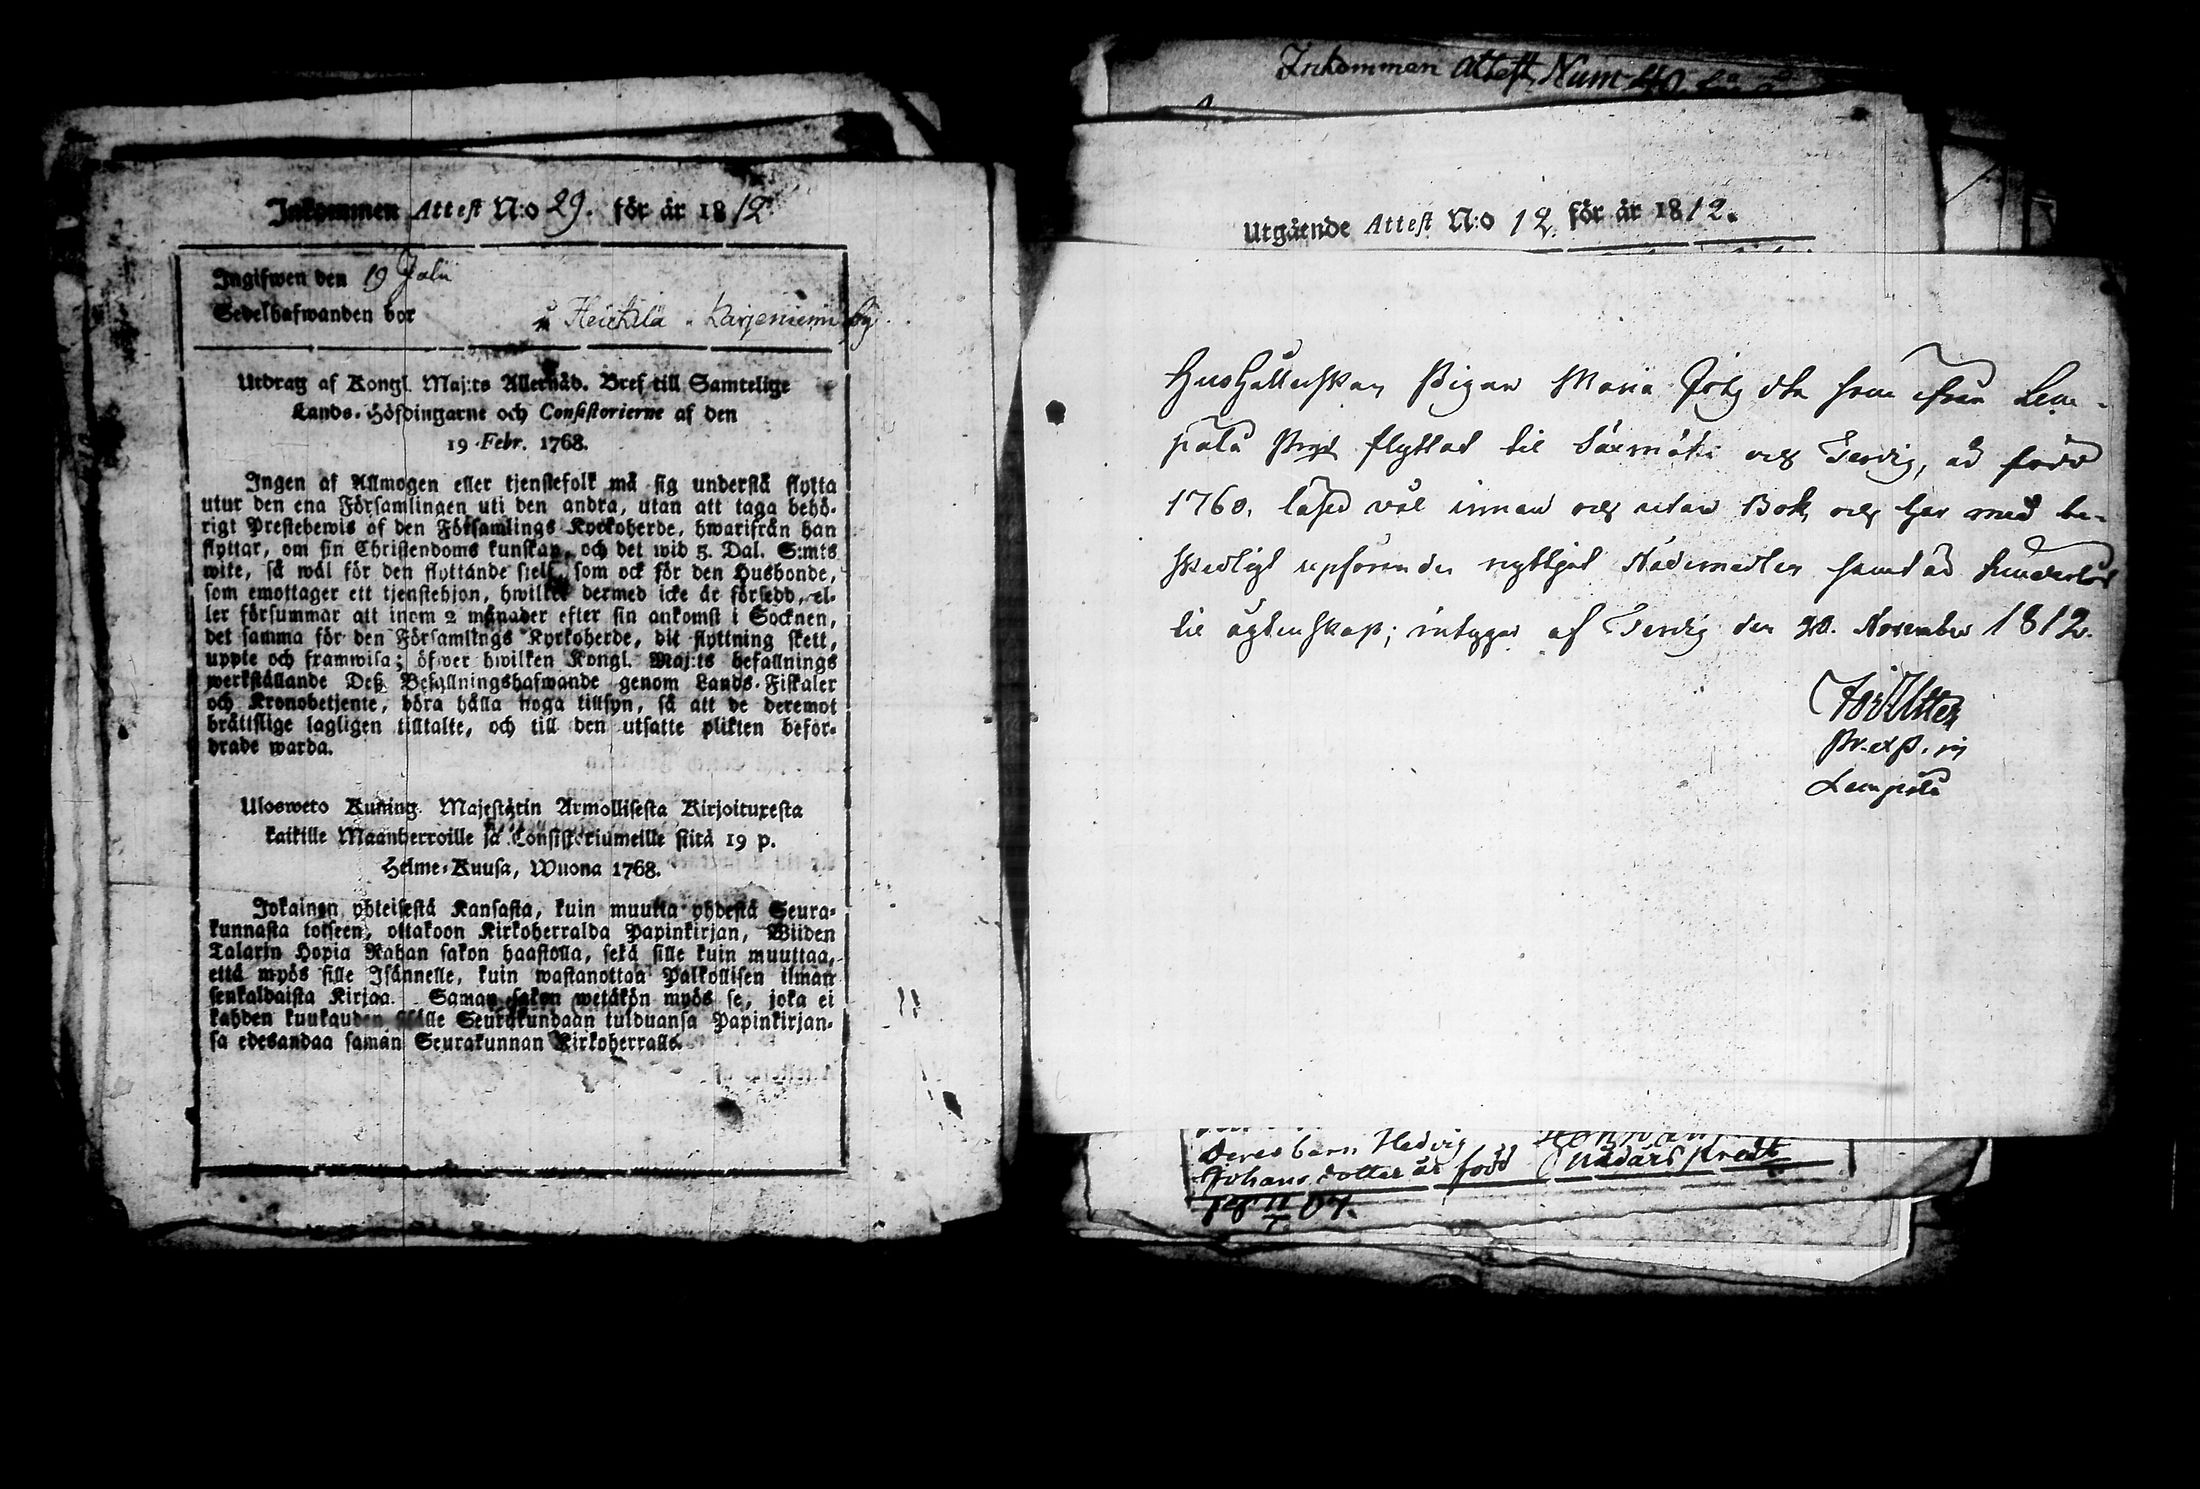 Inkommen Attest N:o 29. för år 1812.
Ingifwen den 19 Julii
Sedelhafwanden bor Heickilä Karjeniemi by
Utdrag af Kongl. Maj:ts Allernåd. Bref till Samtelige
Lands-Höfdingarne och Consistorierne af den
19 Febr. 1768.
Ingen af Allmogen eller tjenstefolk må sig understå flytta
utur den ena Församlingen uti den andra, utan att taga behö-
rigt Prestebewis af den Församlings Kyrkoherde, hwarifrån han
flyttar, om sin Christendoms kunskap, och det wid 5. Dal. S:mts
wite, så wäl för den flyttande sielf, som ock för den Husbonde,
som emottager ett tjenstehjon, hwilket dermed icke är försedd, el-
ler försummar att inom 2 månader efter sin ankomst i Socknen,
det samma för den Församlings Kyrkoherde, dit flyttning skett,
uppte och framwisa; öfwer hwilken Kongl. Maj:ts befallnings
werkställande Deß Befallningshafwande genom Lands-Fiskaler
och Kronobetjente, böra hålla noga tillsyn, så att de deremot
bråttslige lagligen tilltalte, och till den utsatte plikten befor-
drade warda.
Ulosweto Kuning. Majestätin Armollisesta Kirjoituxesta
kaikille Maanherroille ja Consistoriumeille siitä 19 p.
Helme-Kuusa, Wuona 1768.
Jokainen yhteisestä Kansasta, kuin muutta yhdestä Seura-
kunnasta toiseen, ottakoon Kirkoherralda Papinkirjan, Wiiden
Talarin Hopia Rahan sakon haastolla, sekä sille kuin muuttaa,
että myös sille Isännelle, kuin wastanottaa Palkollisen ilman
senkaldaista Kirjaa. Saman sakon wetäkön myös se, joka ei
kahden kuukauden sisälle Seurakundaan tulduansa Papinkirjan-
sa edesandaa saman Seurakunnan Kirkoherralle.
Inkommen attest Num 40
Utgående Attest N:o 12. för år 1812.
Hushållerskan Pigan Maria dtr som ifrån Lem-
päälä flyttat til Säxmäki och är född
1760, läser väl innan och utan Bok, och har med be-
skedligt uppförande nyttjat Nådemedlen samt är hinderlös
til ägtenskap; intygar af den 20. November 1812.
in
Lempälä
Deras barn Hedvig
Johans dotter är född